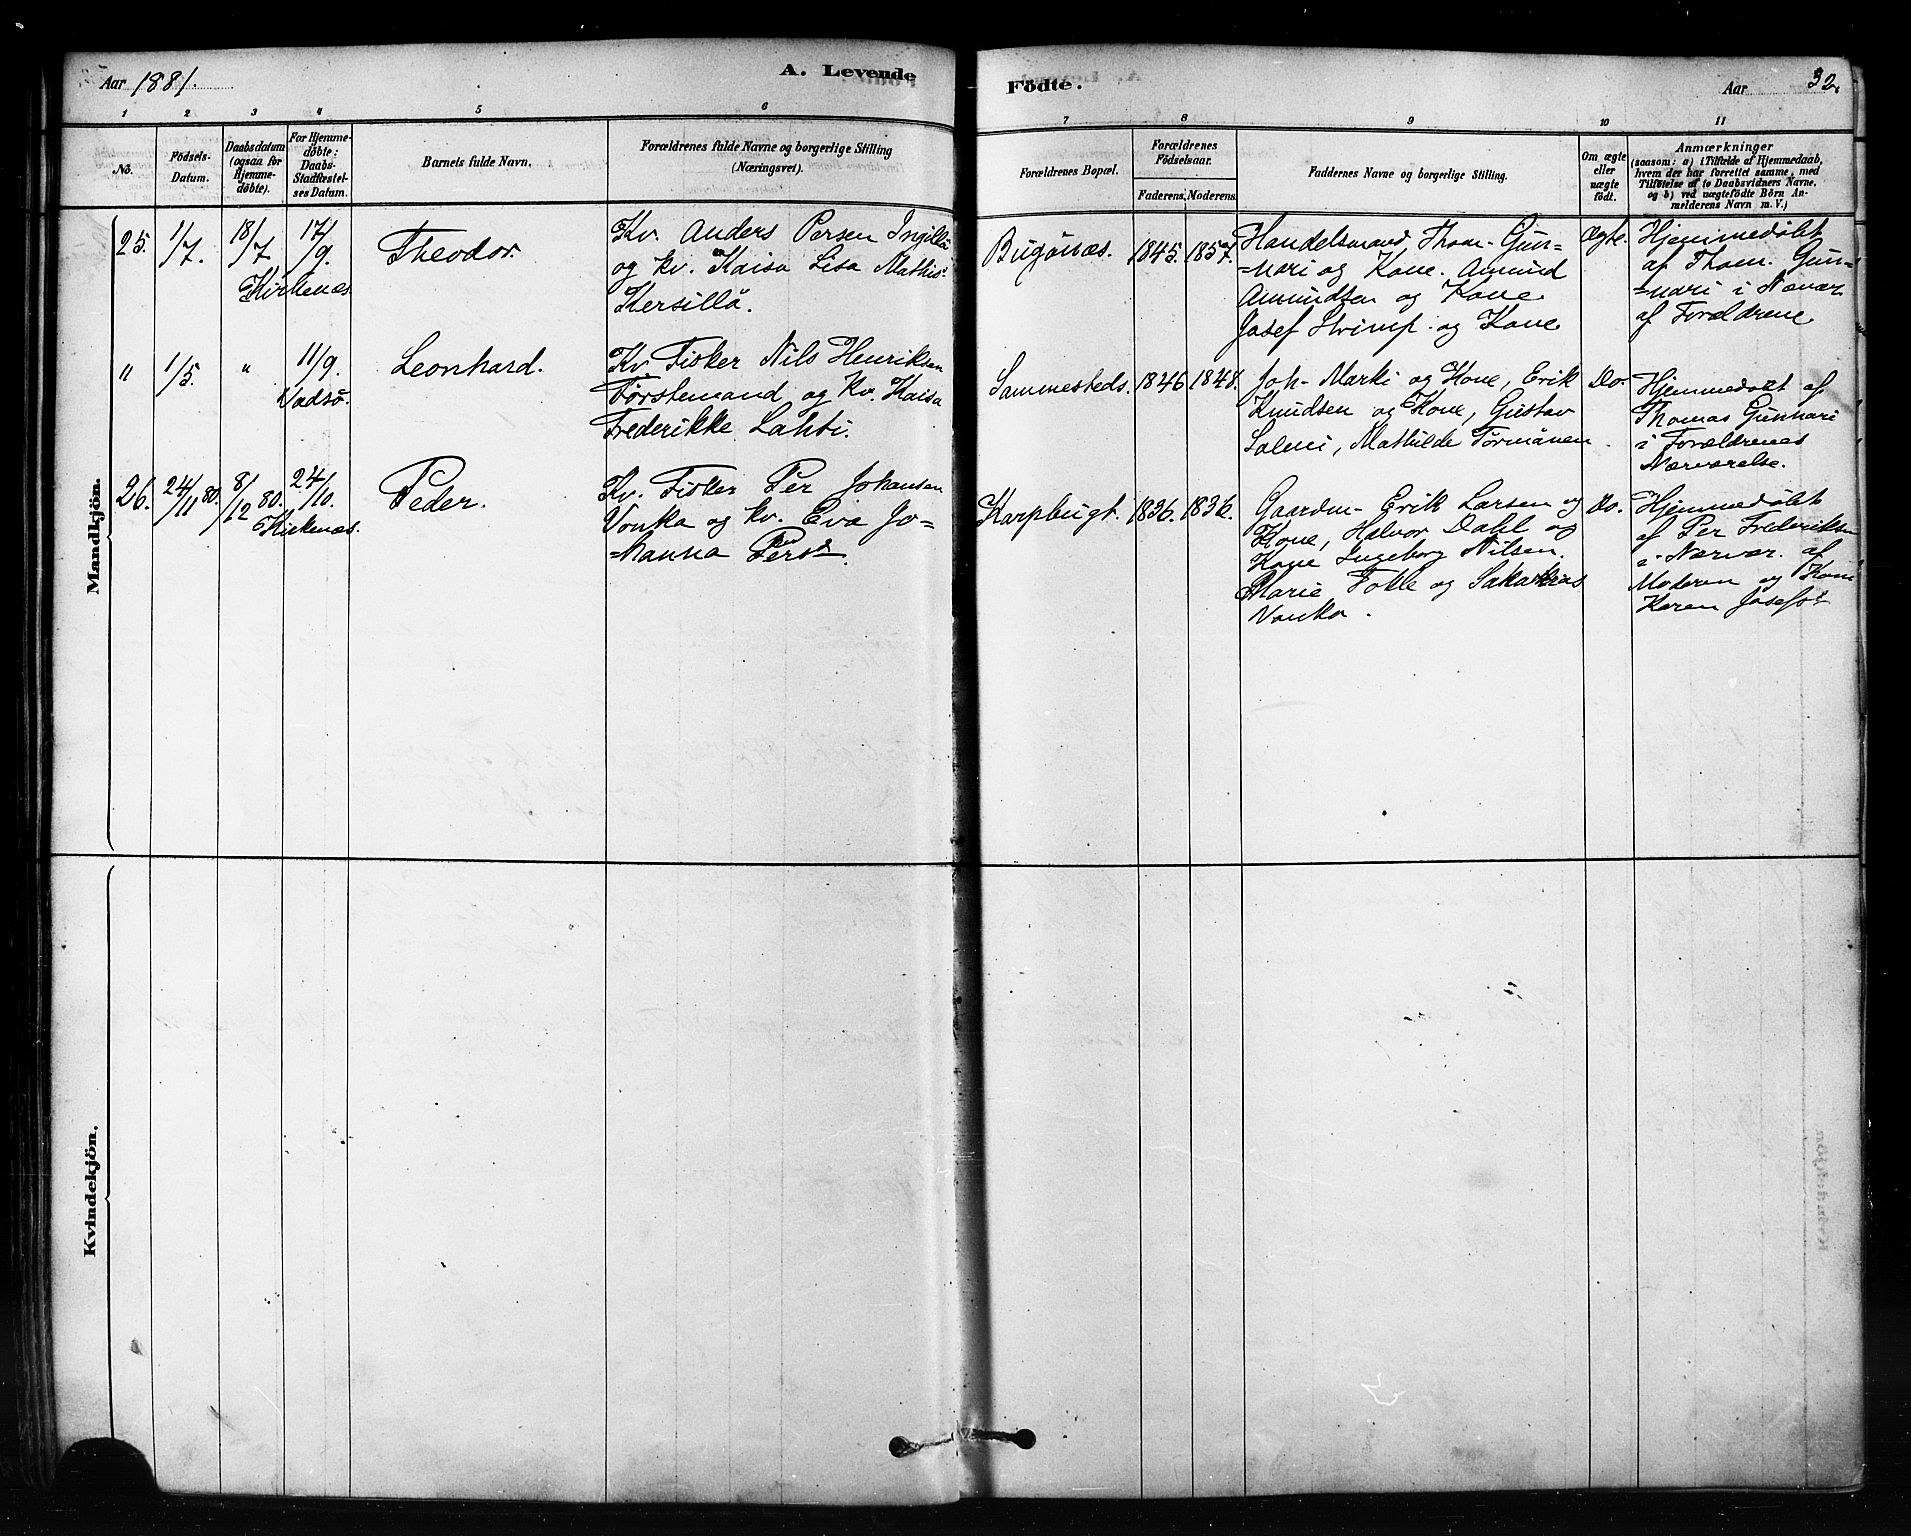 Aar 1881.
A. Levende
Födte.
Aar
32.
1 2 3 4 5 6 7 8 9 10 11
No.
Födsels-Datum.
Daabsdatum (ogsaa for Hjemme-döbte).
For Hjemme-döbte: Daabs-Stadfæstel-ses Datum.
Barnets fulde Navn.
Forældrenes fulde Navne og borgerlige Stilling (Næringsvei).
Forældrenes Bopæl.
Forældrenes Födselsaar.
Faderens. Moderens.
Faddernes Navne og borgerlige Stilling.
Om ægte eller uægte födt.
Anmærkninger
(saasom: a) i Tilfælde af Hjemmedaab,
hvem der har forrettet samme, med
Tilföielse af to Daabsvidners Navne,
og b) ved uægtefödte Börn An-
melderens Navn m. V.)
Mandkjön.
25. 1/7. 18/7 17/9.
Kirkenæs
Theodor.
Kv. Anders Persen Ingillä
og kv. Kaisa Lisa Mathis
Kersillä.
Bugönæs. 1845. 1857.
Handelsmand, Thom. Gun-
=nari og Kone. Amund
Amundsen og Kone
Josef Strimp. og Kone
Ægte.
Hjemmedøbt
af Thom. Gun-
=nari i Nærvær
af Forældrene
" 1/5. " 11/9.
Vadsö.
Leonhard.
Kv. Fisker Nils Henriksen
Törstemand og kv. Kaisa
Frederikke Lahti.
Sammesteds. 1846 1848.
Joh. Marki og Kone, Erik
Knudsen og Kone, Gustav
Salmi, Mathilde Törmänen.
Do.
Hjemmedøbt af
Thomas Gunnari
i Forældrenes
Nærværelse.
26. 24/11 80. 8/12 80. 24/10.
Kirkenæs.
Peder.
Kv. Fisker Per Johansen
Vonka og kv. Eva Jo=
=hanna Persd
Karpbugt. 1836. 1836.
Gaardm. Erik Larsen og
Kone, Halvor Dahl og
Kone Ingeborg Nilsen.
Marie Fokle og Sakarias
Vonka.
Do.
Hjemmedøbt
af Per Frederiksen
i Nærvær. af
Moderen og Kone
Karen Josefsd
Kvindekjön.